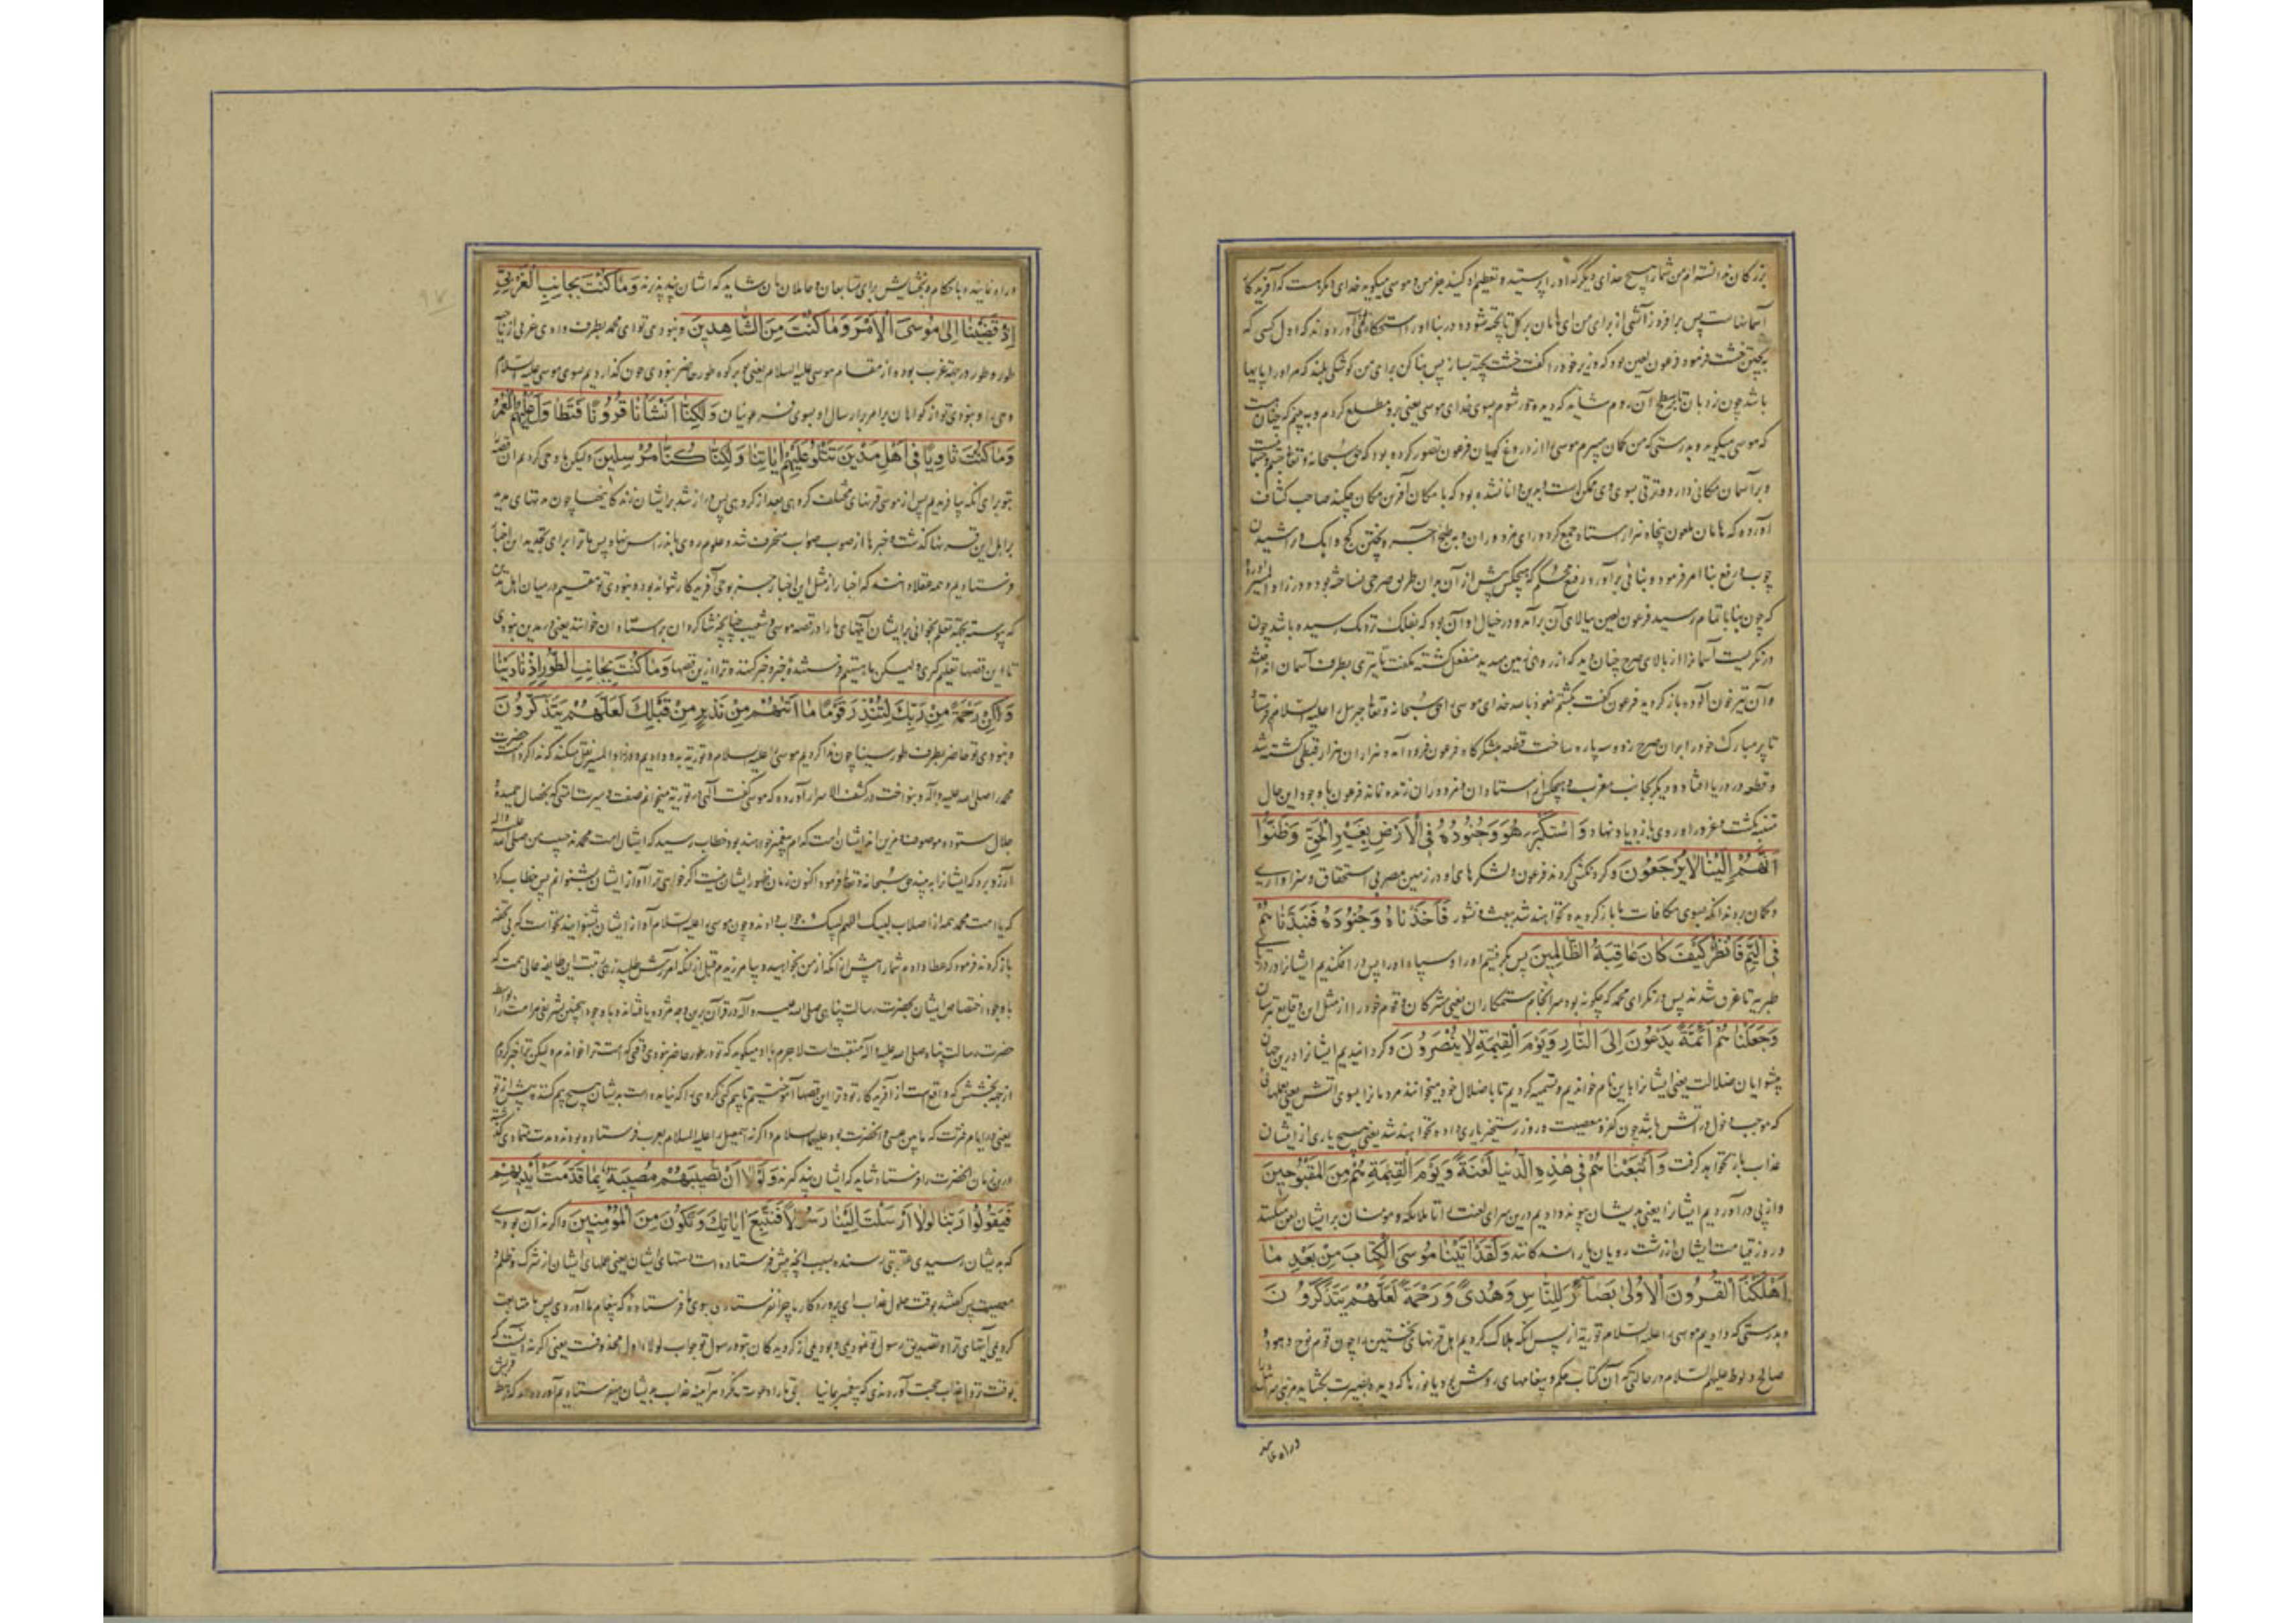 بزرگان ندانسته‌ام من شما را هیچ خدای دیگر که او را پرستید و تعظیم او کنید جز من و موسی میگوید خدای دیگر هست که آفریدگار
آسمانهاست پس برافروز آتشی از برای من ای هامان بر گل تا پخته شود و در بنا او را استحکام آورده‌اند که اول کسی که
به پختن خشت فرمود فرعون لعین بود که وزیر خود را گفت خشت پخته بساز پس بنا کن برای من کوشکی بلند که مر او را پایها
باشد چون نردبان تا بر سطح آن روم شاید که دیده‌ور شوم بسوی خدای موسی یعنی برو مطلع گردم و ببینم که چنانست
که موسی میگوید و بدرستی که من گمان میبرم موسی را از دروغ گویان فرعون تصور کرده بود که حق سبحانه و تعالی جسم و جسمانیست
و بر آسمان مکانی دارد و ترقی بسوی وی ممکن است و بدین دانا نشده بود که با مکان آفرین مکان چکند صاحب کشاف
آورده که هامان ملعون پنجاه هزار استاد جمع کرد ورای مزدوران و به طبخ آجر و پختن گچ و آهک و تراشیدن
چوب و رفع بنا امر فرمود و بنائی برآورد رفیع محکم که هیچکس پیش از آن بدان طریق صرحی نساخته بود و در زاد المسیر آورده
که چون بنا باتمام رسید فرعون لعین ببالای آن برآمد و در خیال او آن بود که بفلک نزدیک رسیده باشد چون
درنگریست آسمان را از بالای صرح چنان دید که از روی زمین میدید منفعل گشته بگفت تا تیری بطرف آسمان انداختند
و آن تیر خون آلوده بازگردید فرعون گفت بکشتم نعوذ بالله خدای موسی را حق سبحانه و تعالی جبرئیل را علیه السلام فرستاد
تا پر مبارک خود را بر آن صرح زد و سه پاره ساخت قطعه بلشکرگاه فرعون فرود آمد و هزاران هزار قبطی کشته شد
و قطعه در دریا افتاد و دیگر بجانب مغرب و هیچکس از استادان و مزدوران زنده نماند فرعون با وجود این حال
متنبه نگشت و غرور او روی بازدیاد نهاد وَاسْتَكْبَرَ هُوَ وَجُنُودُهُ فِی الْاَرْضِ بِغَیْرِ الْحَقِّ وَظَنُّوا
اَنَّهُمْ اِلَیْنَا لَا یُرْجَعُونَ و گردنکشی کردند فرعون و لشکرهای او در زمین مصر بی استحقاق و سزاواری
و گمان بردند آنکه بسوی مکافات ما بازگردیده نخواهند شد ببعث و نشور فَاَخَذْنَاهُ وَجُنُودَهُ فَنَبَذْنَاهُمْ
فِی الْیَمِّ فَانْظُرْ كَیْفَ كَانَ عَاقِبَةُ الظَّالِمِینَ پس بگرفتیم او را و سپاه او را پس درافکندیم ایشانرا در دریای
طبریه تا غرق شدند پس درنگر ای محمد که چگونه بود سرانجام ستمکاران یعنی مشرکان و قوم خود را از مثل این وقایع بترسان
وَجَعَلْنَاهُمْ اَئِمَّةً یَدْعُونَ اِلَی النَّارِ وَیَوْمَ الْقِیٰمَةِ لَا یُنْصَرُونَ و گردانیدیم ایشانرا درین جهان
پیشوایان ضلالت یعنی ایشانرا باین نام خواندیم و تسمیه کردیم تا با ضلال خود میخوانند مردمانرا بسوی آتش یعنی بعملهائی
که موجب دخول در آتش باشد چون کفر و معصیت و روز رستخیز یاری داده نخواهند شد یعنی هیچ یاری از ایشان
عذاب باز نخواهد گرفت وَاَتْبَعْنَاهُمْ فِی هٰذِهِ الدُّنْیَا لَعْنَةً وَیَوْمَ الْقِیٰمَةِ هُمْ مِنَ الْمَقْبُوحِینَ
و از پی درآوردیم ایشانرا یعنی بدیشان پیوند دادیم درین سرای لعنت را تا ملائکه و مومنان بر ایشان لعن میکنند
و روز قیامت ایشان از زشت رویان یا راندگانند وَلَقَدْ اٰتَیْنَا مُوسَی الْكِتَابَ مِنْ بَعْدِ مَا
اَهْلَكْنَا الْقُرُونَ الْاُولٰی بَصَآئِرَ لِلنَّاسِ وَهُدًی وَرَحْمَةً لَعَلَّهُمْ یَتَذَكَّرُونَ
و بدرستی که دادیم موسی را علیه السلام توریة از پس آنکه هلاک کردیم اهل قرنهای نخستین را چون قوم نوح و هود و
صالح و لوط علیهم السلام در حالتی که آن کتاب حکم و پیغامهای روشن بود یا نورها که دیده بصیرت بخشاید
وراه نماینده
وراه نماینده و باحکام و بخشایش برای متابعان و عاملان آن شاید که ایشان پند پذیرند وَمَا كُنْتَ بِجَانِبِ الْغَرْبِیِّ
اِذْ قَضَیْنَا اِلٰی مُوسَی الْاَمْرَ وَمَا كُنْتَ مِنَ الشَّاهِدِینَ و نبودی تو ای محمد بطرف وادی غربی از ناحیه
طور و طور در جهة غرب بوده از مقام موسی علیه السلام یعنی تو بر کوه طور حاضر نبودی چون گذاردیم بسوی موسی علیه السلام
وحی را و نبودی تو از گواهان بر امر بارسال او بسوی فرعونیان وَلٰكِنَّا اَنْشَاْنَا قُرُونًا فَتَطَاوَلَ عَلَیْهِمُ الْعُمُرُ
وَمَا كُنْتَ ثَاوِیًا فِی اَهْلِ مَدْیَنَ تَتْلُو عَلَیْهِمْ اٰیَاتِنَا وَلٰكِنَّا كُنَّا مُرْسِلِینَ ولیکن ما وحی کردیم این قصه
بتو برای آنکه بیافریدیم پس از موسی قرنهای مختلف گروهی بعد از گروهی پس دراز شد بر ایشان زندگانیها چون مدتهای مدید
بر اهل این قرنها گذشت و خبرها از صوب صواب منحرف شد و علوم روی باندراس نهاد پس ما ترا برای تجدید این اخبار
فرستادیم و همه عقلا دانند که اخبار از مثل این اخبار جز بوحی آفریدگار نتواند بود و نبودی تو مقیم در میان اهل مدین
که پیوسته بجهة تعلم بخوانی بر ایشان آیتهای ما را در قصه موسی و شعیب چنانچه شاگردان بر استادان خوانند یعنی در مدین نبودی
تا این قصها تعلیم گیری ولیکن ما هستیم فرستنده خبر و خبر کننده ترا ازین قصها وَمَا كُنْتَ بِجَانِبِ الطُّورِ اِذْ نَادَیْنَا
وَلٰكِنْ رَحْمَةً مِنْ رَبِّكَ لِتُنْذِرَ قَوْمًا مَا اَتٰیهُمْ مِنْ نَذِیرٍ مِنْ قَبْلِكَ لَعَلَّهُمْ یَتَذَكَّرُونَ
و نبودی تو حاضر بطرف طور سینا چون ندا کردیم موسی را علیه السلام و توریة بدو دادیم و در زاد المسیر نقل میکند که ندا کرد امت حضرت
محمد را صلی الله علیه وآله و بنواخت در کشف الاسرار آورده که موسی گفت الهی در توریة میخوانم صفت و سیرت امتی که بخصال حمیده
جلال ستوده موصوف و مزین‌اند ایشان امت کدام پیغمبر خواهند بود خطاب رسید که ایشان امت محمدند حبیب من صلی الله علیه وآله
آرزو برد که ایشانرا به بیند حق سبحانه و تعالی فرمود اکنون زمان ظهور ایشان نیست اگر خواهی ترا آواز ایشان بشنوانم پس خطاب کرد
که یا امت محمد همه از اصلاب لبیک اللهم لبیک جواب دادند و چون موسی را علیه السلام آواز ایشان بشنوانید نخواست که بی تحفه
بازگردند فرمود که عطا دادم شما را پیش از آنکه از من بخواهید و بیامرزیدم قبل از آنکه آمرزش طلبید زهی رتبت این طایفه عالی همت که
با وجود اختصاص ایشان بحضرت رسالت پناهی صلی الله علیه وآله در قرآن برین وجه مژده یافته‌اند و با وجود اینچنین شرفی مر امت را بواسطه
حضرت رسالت پناه صلی الله علیه وآله منقبت است لاجرم با او میگوید که تو در طور حاضر نبودی وقتی که امت ترا خواندم ولیکن ترا خبر کردم
از جهة بخششی که واقع است از آفریدگار تو و ترا این قصها آموختیم تا بیم کنی گروهی را که نیامده است بدیشان هیچ بیم کننده پیش از تو
یعنی در ایام فترت که مابین عیسی و آنحضرت بود علیهما السلام و اگر نه اسمعیل را علیه السلام بعرب فرستاده بودند و مدت متمادی گذشته
درین زمان آنحضرت را فرستاد شاید که ایشان پند گیرند وَلَوْلَا اَنْ تُصِیبَهُمْ مُصِیبَةٌ بِمَا قَدَّمَتْ اَیْدِیهِمْ
فَیَقُولُوا رَبَّنَا لَوْلَا اَرْسَلْتَ اِلَیْنَا رَسُولًا فَنَتَّبِعَ اٰیَاتِكَ وَنَكُونَ مِنَ الْمُؤْمِنِینَ و اگر نه آن بودی
که بدیشان رسیدی عقوبتی رسنده بسبب آنچه پیش فرستاده است دستهای ایشان یعنی عملهای ایشان از شرک و ظلم و
معصیت پس گفتند بوقت حلول عذاب ای پروردگار ما چرا نفرستادی بسوی ما فرستاده که پیغام ما آوردی پس ما متابعت
کردیمی آیتهای ترا و تصدیق رسول تو نمودیمی و بودیمی از گرویدگان بتو و رسول تو جواب لولا اول محذوفست یعنی اگر نه آنست که
بوقت نزول عذاب حجت آوردندی که پیغمبر بما نیامد تا ما را دعوت نکرد هرآینه عذاب بدیشان میفرستادیم آورده‌اند که قریش